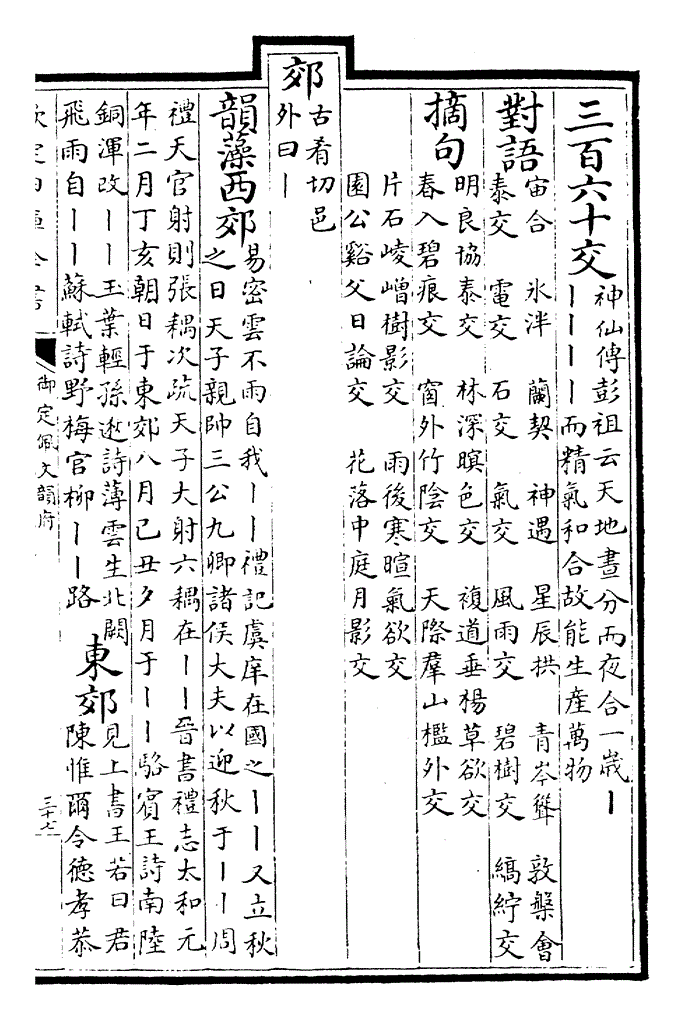 三百六十交
神仙傳彭祖云天地晝分而夜合一歲｜
｜｜｜｜而精氣和合故能生產萬物
對語
宙合　氷泮　蘭契　神遇　星辰拱　青岑聳　敦槃會
泰交　電交　石交　氣交　風雨交　碧樹交　縞紵交
摘句
明良協泰交　林深暝色交　複道垂楊草欲交
春入碧痕交　窗外竹陰交　天際羣山檻外交
片石崚嶒樹影交　雨後寒暄氣欲交
園公谿父日論交　花落中庭月影交
郊
古肴切邑
外曰｜
韻藻西郊
易密雲不雨自我｜｜禮記虞庠在國之｜｜又立秋
之日天子親帥三公九卿諸侯大夫以迎秋于｜｜周
禮天官射則張耦次疏天子大射六耦在｜｜晉書禮志太和元
年二月丁亥朝日于東郊八月己丑夕月于｜｜駱賓王詩南陸
銅渾改｜｜玉葉輕孫逖詩薄雲生北闕
飛雨自｜｜蘇軾詩野梅官柳｜｜路
東郊
見上書王若曰君
陳惟爾令德孝恭
欽定四庫全書
御定佩文韻府
三十七